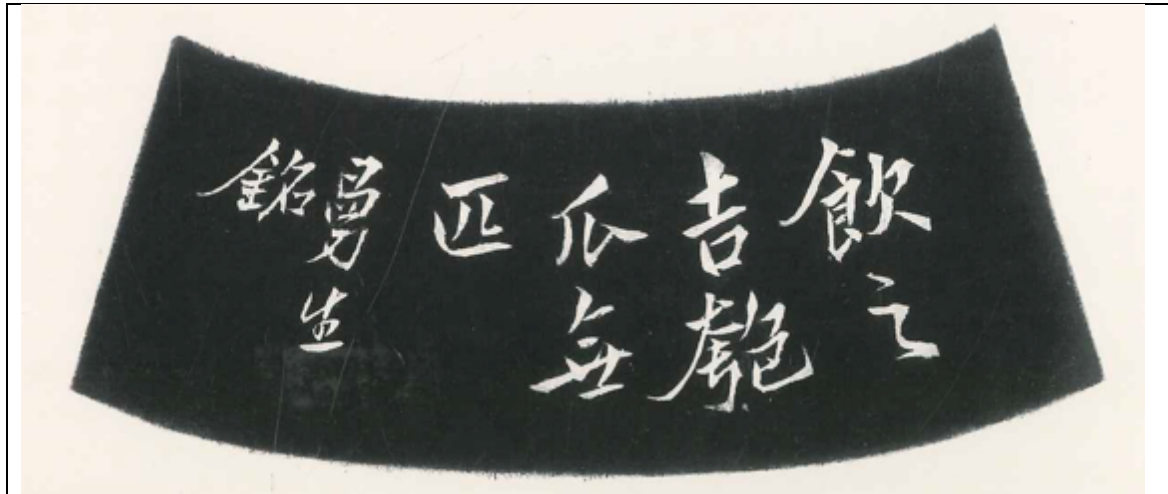 飲之
吉匏
瓜無
匹
曼生
銘